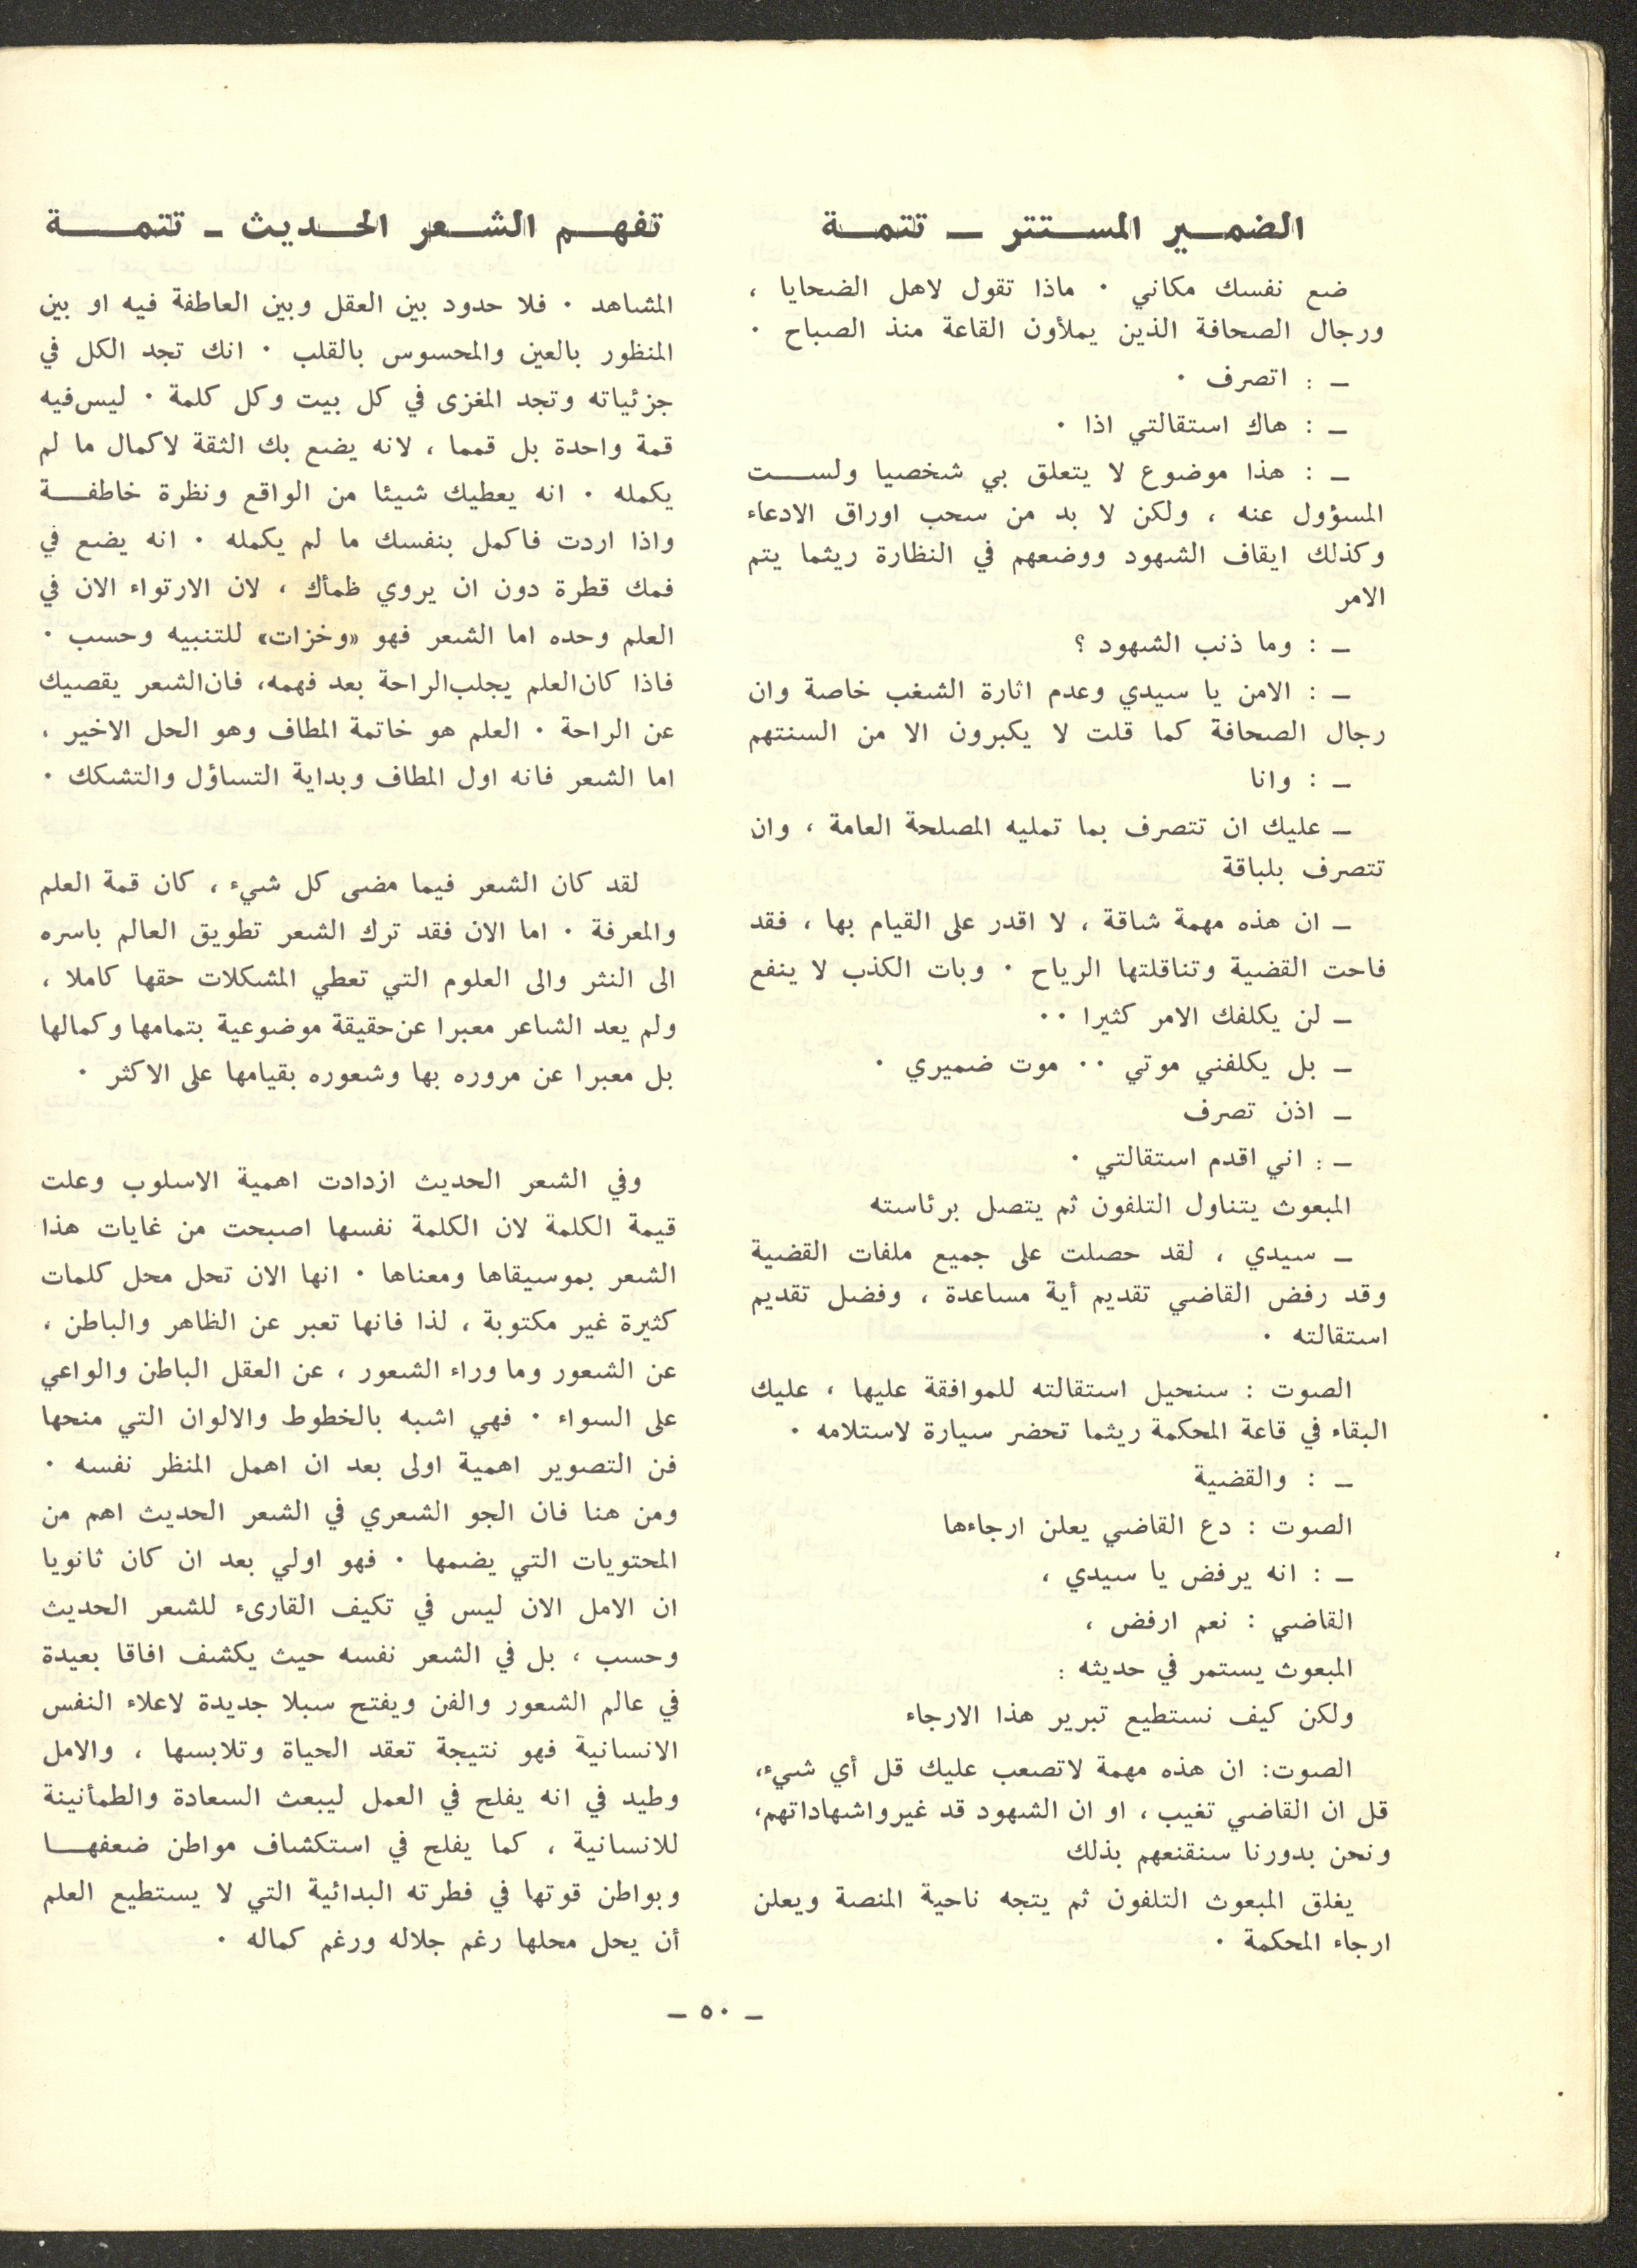 الضمير المستتر ــ تتمة
ضع نفسك مكاني . ماذا تقول لاهل الضحايا ،
ورجال الصحافة الذين يملأون القاعة منذ الصباح .
ــ : اتصرف .
ــ : هاك استقالتي اذا .
ــ : هذا موضوع لا يتعلق بي شخصيا ولست
المسؤول عنه ، ولكن لا بد من سحب اوراق الادعاء
وكذلك ايقاف الشهود ووضعهم في النظارة ريثما يتم
الامر
ــ : وما ذنب الشهود ؟
ــ : الامن يا سيدي وعدم اثارة الشغب خاصة وان
رجال الصحافة كما قلت لا يكبرون الا من السنتهم
ــ : وانا
ــ عليك ان تتصرف بما تمليه المصلحة العامة ، وان
تتصرف بلباقة
ــ ان هذه مهمة شاقة ، لا اقدر على القيام بها ، فقد
فاحت القضية وتناقلتها الرياح . وبات الكذب لا ينفع
ــ لن يكلفك الامر كثيرا ..
ــ بل يكلفني موتي .. موت ضميري .
ــ اذن تصرف
ــ : اني اقدم استقالتي .
المبعوث يتناول التلفون ثم يتصل برئاسته
ــ سيدي ، لقد حصلت على جميع ملفات القضية
وقد رفض القاضي تقديم أية مساعدة ، وفضل تقديم
استقالته .
الصوت : سنحيل استقالته للموافقة عليها ، عليك
البقاء في قاعة المحكمة ريثما تحضر سيارة لاستلامه .
ــ : والقضية
الصوت : دع القاضي يعلن ارجاءها
ــ : انه يرفض يا سيدي ،
القاضي : نعم ارفض ،
المبعوث يستمر في حديثه :
ولكن كيف نستطيع تبرير هذا الارجاء
الصوت: ان هذه مهمة لاتصعب عليك قل أي شيء،
قل ان القاضي تغيب ، او ان الشهود قد غيرواشهاداتهم،
ونحن بدورنا سنقنعهم بذلك
يغلق المبعوث التلفون ثم يتجه ناحية المنصة ويعلن
ارجاء المحكمة .
تفهم الشعر الحديث ـ تتمة
المشاهد . فلا حدود بين العقل وبين العاطفة فيه او بين
المنظور بالعين والمحسوس بالقلب . انك تجد الكل في
جزئياته وتجد المغزى في كل بيت وكل كلمة . ليس فيه
قمة واحدة بل قمما ، لانه يضع بك الثقة لاكمال ما لم
يكمله . انه يعطيك شيئا من الواقع ونظرة خاطفة
واذا اردت فاكمل بنفسك ما لم يكمله . انه يضع في
فمك قطرة دون ان يروي ظمأك ، لان الارتواء الان في
العلم وحده اما الشعر فهو «وخزات» للتنبيه وحسب .
فاذا كان العلم يجلب الراحة بعد فهمه، فان الشعر يقصيك
عن الراحة . العلم هو خاتمة المطاف وهو الحل الاخير ،
اما الشعر فانه اول المطاف وبداية التساؤل والتشكك .
لقد كان الشعر فيما مضى كل شيء ، كان قمة العلم
والمعرفة . اما الان فقد ترك الشعر تطويق العالم باسره
الى النثر والى العلوم التي تعطي المشكلات حقها كاملا ،
ولم يعد الشاعر معبرا عن حقيقة موضوعية بتمامها وكمالها
بل معبرا عن مروره بها وشعوره بقيامها على الاكثر .
وفي الشعر الحديث ازدادت اهمية الاسلوب وعلت
قيمة الكلمة لان الكلمة نفسها اصبحت من غايات هذا
الشعر بموسيقاها ومعناها . انها الان تحل محل كلمات
كثيرة غير مكتوبة ، لذا فانها تعبر عن الظاهر والباطن ،
عن الشعور وما وراء الشعور ، عن العقل الباطن والواعي
على السواء . فهي اشبه بالخطوط والالوان التي منحها
فن التصوير اهمية اولى بعد ان اهمل المنظر نفسه .
ومن هنا فان الجو الشعري في الشعر الحديث اهم من
المحتويات التي يضمها . فهو اولي بعد ان كان ثانويا
ان الامل الان ليس في تكيف القارىء للشعر الحديث
وحسب ، بل في الشعر نفسه حيث يكشف افاقا بعيدة
في عالم الشعور والفن ويفتح سبلا جديدة لاعلاء النفس
الانسانية فهو نتيجة تعقد الحياة وتلابسها ، والامل
وطيد في انه يفلح في العمل ليبعث السعادة والطمأنينة
للانسانية ، كما يفلح في استكشاف مواطن ضعفها
وبواطن قوتها في فطرته البدائية التي لا يستطيع العلم
أن يحل محلها رغم جلاله ورغم كماله .
ــ ٥٠ ــ